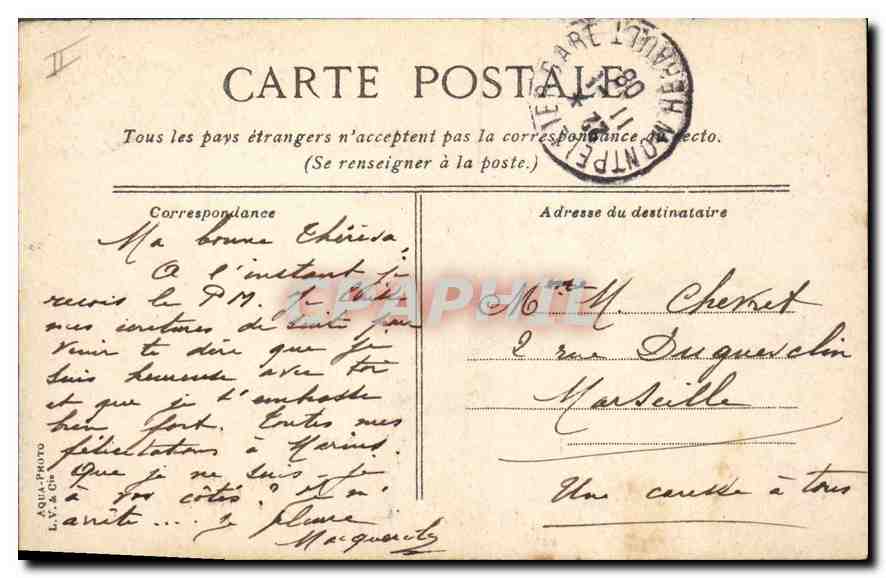 II
CARTE POSTALE
Tous les pays étrangers n'acceptent pas la correspondance au recto.
(Se renseigner à la poste.)
MONTPELLIER GARE HERAULT
22
11
08
Correspondance
Ma bonne Thérésa,
A l'instant je
reçois le P.M. Je
mes écritures de suite pour
venir te dire que je
suis heureuse avec toi
et que je t'embrasse
bien fort. Toutes mes
félicitations à Marius.
Que je ne suis-je
à vos côtés? Je m'
arrête .... je pleure
Adresse du destinataire
Mme M. Chevret
2 rue Duguesclin
Marseille
Une caresse à tous
CPAPHIL
AQUA-PHOTO
L. V. & Cie